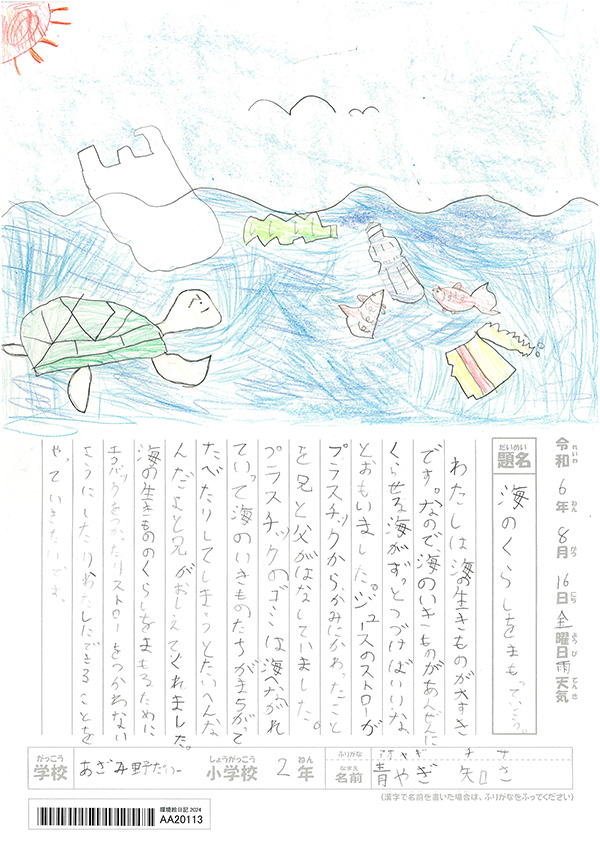 令和6年8月16日金曜日雨天気
れいわ ねん がつ にち ようび てんき
だいめい
題名
海のくらしをまもっていこう。
わたしは海の生きものが大すき
です。なので、海のいきものがあんぜんに
くらせる海がずっとつづけばいいな
とおもいました。ジュースのストローが
プラスチックからかみにかわったこと
を兄と父がはなしていました。
プラスチックのゴミは海へながれ
ていって海のいきものたちがまちがって
たべたりしてしまうとたいへんな
んだよと兄がおしえてくれました。
海の生きもののくらしをまもるために
エコバックをつかったりストローをつかわない
ようにしたりわたしにできることを
やっていきたいです。
がっこう
学校
あざみ野だい一
しょうがっこう
小学校
2
ねん
年
ふりがな
なまえ
名前
青やぎ 知さ
(漢字で名前を書いた場合は、ふりがなをふってください)
環境絵日記 2024
AA20113